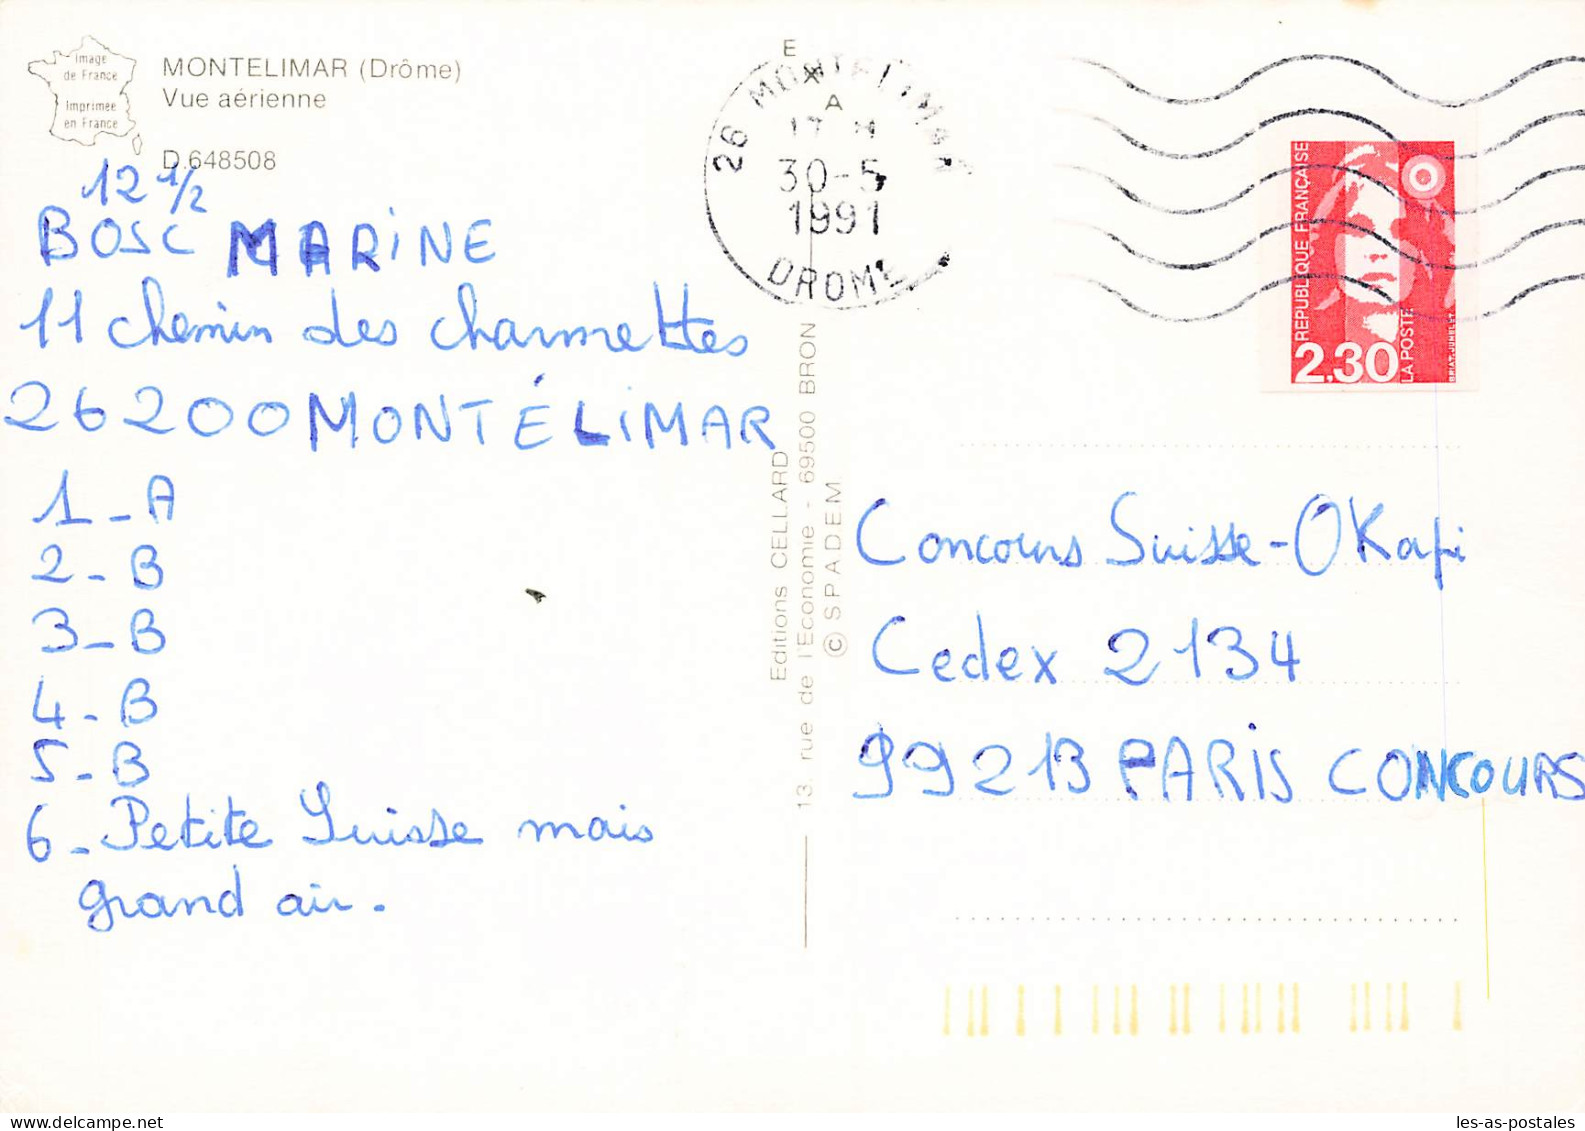 Image
de France
Imprimée
en France
MONTELIMAR (Drôme)
Vue aérienne
D.648508
12 1/2
BOSC MARINE
11 chemin des charmettes
26200 MONTÉLIMAR
1 - A
2 - B
3 - B
4 - B
5 - B
6 - Petite Suisse mais
grand air.
E
A
26 MONTELIMAR
17 H
30-5
1991
DROME
Editions CELLARD
13, rue de l'Economie - 69500 BRON
© SPADEM
REPUBLIQUE FRANÇAISE
2,30
LA POSTE
BRIAT. JUMELET
Concours Suisse-OKapi
Cedex 2134
99213 PARIS CONCOURS
delcampe.net
les-as-postales